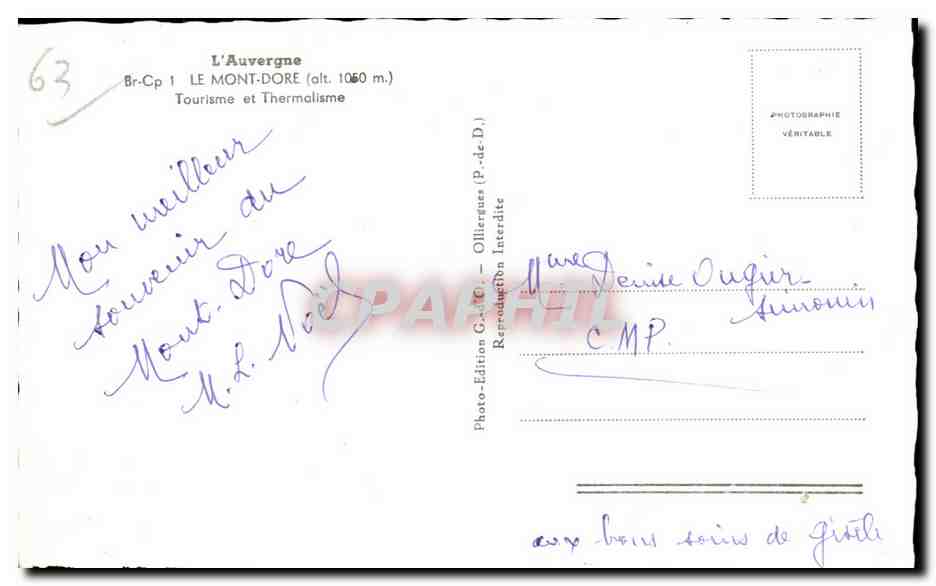 63
L'Auvergne
Br-Cp 1 LE MONT-DORE (alt. 1050 m.)
Tourisme et Thermalisme
Mon meilleur
souvenir du
Mont-Dore
M. L. Noël
Photo-Edition G. d'O. — Olliergues (P.-de-D.)
Reproduction Interdite
PHOTOGRAPHIE
VÉRITABLE
CPAPHIL
Mme Denise Ougier
C.M.P.
aux bons soins de Gisèle